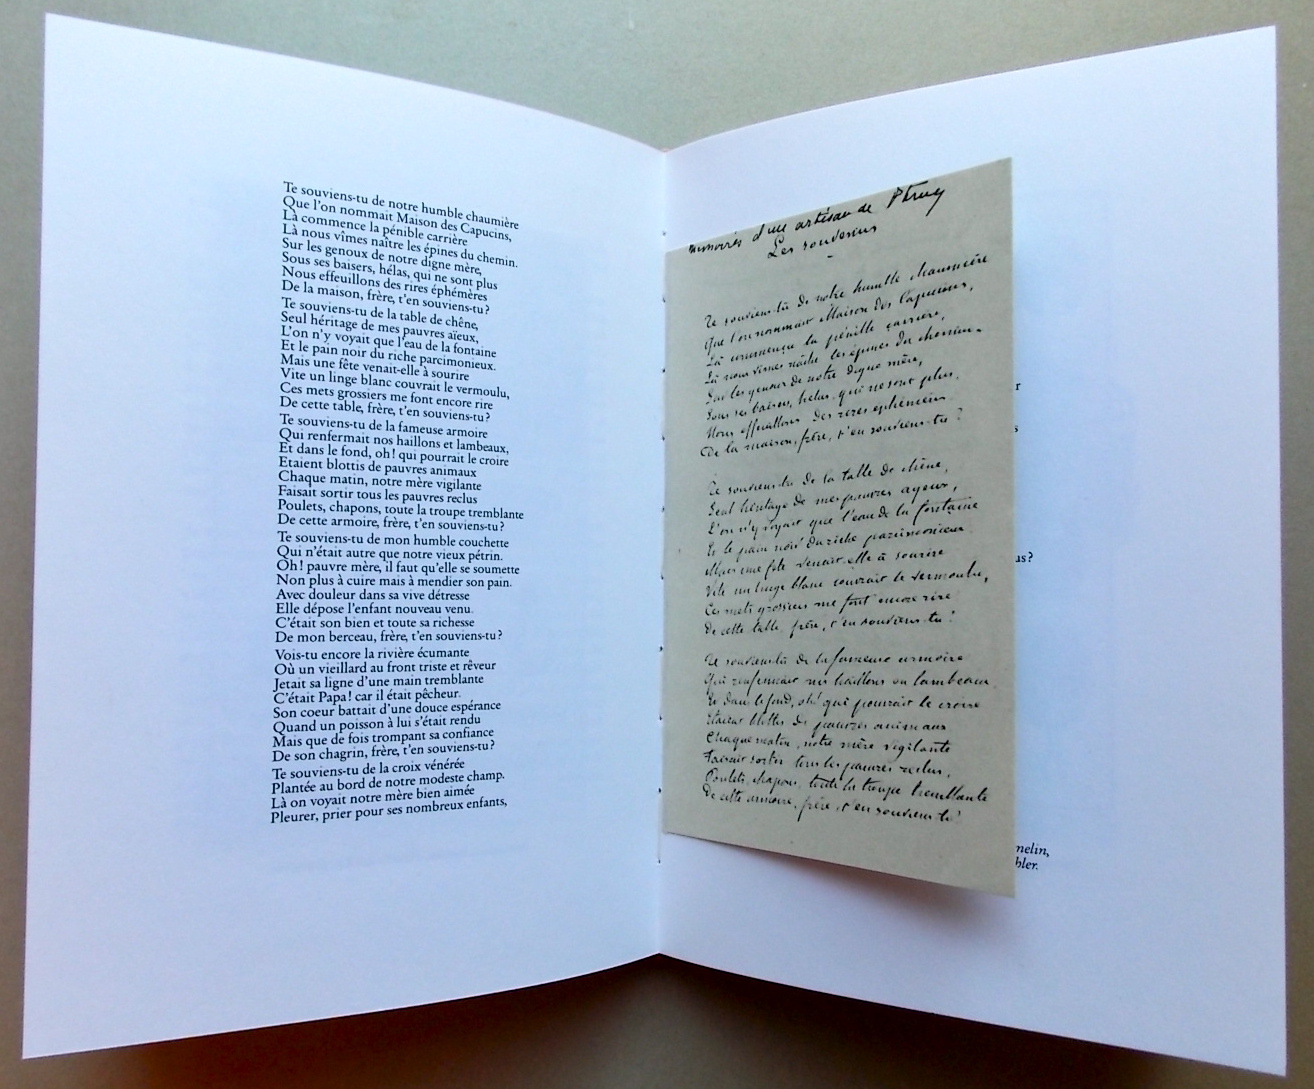 Te souviens-tu de notre humble chaumière
Que l'on nommait Maison des Capucins,
Là commence la pénible carrière
Là nous vîmes naître les épines du chemin.
Sur les genoux de notre digne mère,
Sous ses baisers, hélas, qui ne sont plus
Nous effeuillons des rires éphémères
De la maison, frère, t'en souviens-tu?
Te souviens-tu de la table de chêne,
Seul héritage de mes pauvres aïeux,
L'on n'y voyait que l'eau de la fontaine
Et le pain noir du riche parcimonieux.
Mais une fête venait-elle à sourire
Vite un linge blanc couvrait le vermoulu,
Ces mets grossiers me font encore rire
De cette table, frère, t'en souviens-tu?
Te souviens-tu de la fameuse armoire
Qui renfermait nos haillons et lambeaux,
Et dans le fond, oh! qui pourrait le croire
Etaient blottis de pauvres animaux
Chaque matin, notre mère vigilante
Faisait sortir tous les pauvres reclus
Poulets, chapons, toute la troupe tremblante
De cette armoire, frère, t'en souviens-tu?
Te souviens-tu de mon humble couchette
Qui n'était autre que notre vieux pétrin.
Oh! pauvre mère, il faut qu'elle se soumette
Non plus à cuire mais à mendier son pain.
Avec douleur dans sa vive détresse
Elle dépose l'enfant nouveau venu.
C'était son bien et toute sa richesse
De mon berceau, frère, t'en souviens-tu?
Vois-tu encore la rivière écumante
Où un vieillard au front triste et rêveur
Jetait sa ligne d'une main tremblante
C'était Papa! car il était pêcheur.
Son coeur battait d'une douce espérance
Quand un poisson à lui s'était rendu
Mais que de fois trompant sa confiance
De son chagrin, frère, t'en souviens-tu?
Te souviens-tu de la croix vénérée
Plantée au bord de notre modeste champ.
Là on voyait notre mère bien aimée
Pleurer, prier pour ses nombreux enfants,
d'un artisan de
Les souvenirs
Te souviens-tu de notre humble chaumière
Que l'on nommait Maison des Capucins,
Là commence la pénible carrière,
Là nous vîmes naître les épines du chemin.
Sur les genoux de notre digne mère,
Sous ses baisers, hélas, qui ne sont plus.
Nous effeuillons des rires éphémères
De la maison, frère, t'en souviens-tu?
Te souviens-tu de la table de chêne,
Seul héritage de mes pauvres ayeux,
L'on n'y voyait que l'eau de la fontaine
Et le pain noir du riche parcimonieux
Mais une fête venait-elle à sourire
Vite un linge blanc couvrait le vermoulu,
Ces mets grossiers me font encore rire
De cette table, frère, t'en souviens-tu?
Te souviens-tu de la fameuse armoire
Qui renfermait nos haillons ou lambeaux
Et dans le fond, oh! qui pourrait le croire
Etaient blottis de pauvres animaux
Chaque matin, notre mère vigilante
Faisait sortir tous les pauvres reclus,
Poulets, chapons, toute la troupe tremblante
De cette armoire, frère, t'en souviens-tu?
r
s
us?
nelin,
bler.